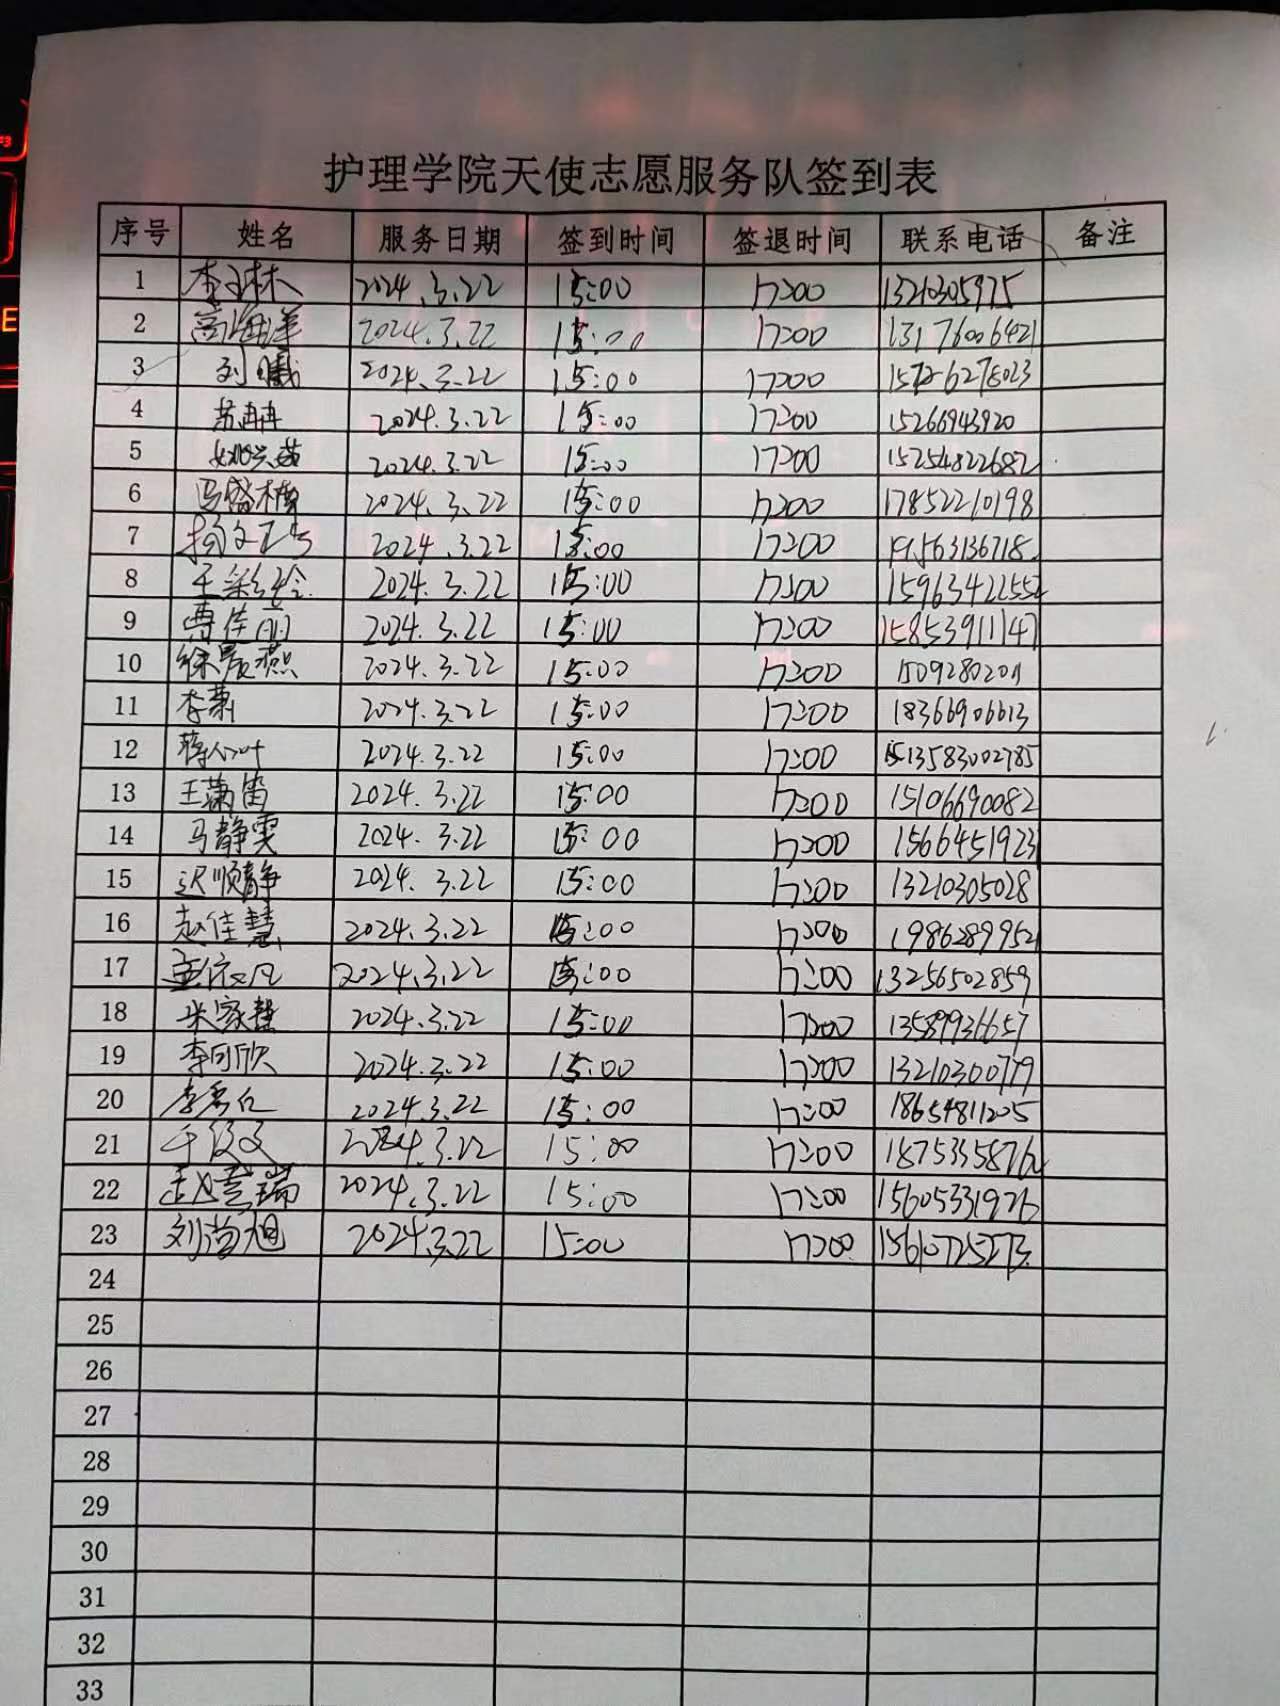 护理学院天使志愿服务队签到表
序号 姓名 服务日期 签到时间 签退时间 联系电话 备注
1 2024.3.22 15:00 17:00 13210305975
2 高海洋 2024.3.22 15:00 17:00 13176006421
3 刘曦 2024.3.22 15:00 17:00 15726278023
4 苏冉冉 2024.3.22 15:00 17:00 15266943920
5 2024.3.22 15:00 17:00 15254822682
6 2024.3.22 15:00 17:00 17852210198
7 2024.3.22 15:00 17:00
8 王彩玲 2024.3.22 15:00 17:00 15963422552
9 曹佳丽 2024.3.22 15:00 17:00 15853911147
10 徐晨燕 2024.3.22 15:00 17:00
11 李萧 2024.3.22 15:00 17:00 18366906613
12 2024.3.22 15:00 17:00 13583002785
13 王潇笛 2024.3.22 15:00 17:00 15106690082
14 马静雯 2024.3.22 15:00 17:00 15664451923
15 迟顺静 2024.3.22 15:00 17:00 13210305028
16 赵佳慧 2024.3.22 15:00 17:00 19862899521
17 2024.3.22 15:00 17:00 13256502859
18 宋家慧 2024.3.22 15:00 17:00 13589936657
19 李可欣 2024.3.22 15:00 17:00 13210300779
20 2024.3.22 15:00 17:00 18654811205
21 2024.3.22 15:00 17:00 18753358762
22 赵慧瑞 2024.3.22 15:00 17:00 15605331926
23 刘尚旭 2024.3.22 15:00 17:00 15610725273
24
25
26
27
28
29
30
31
32
33